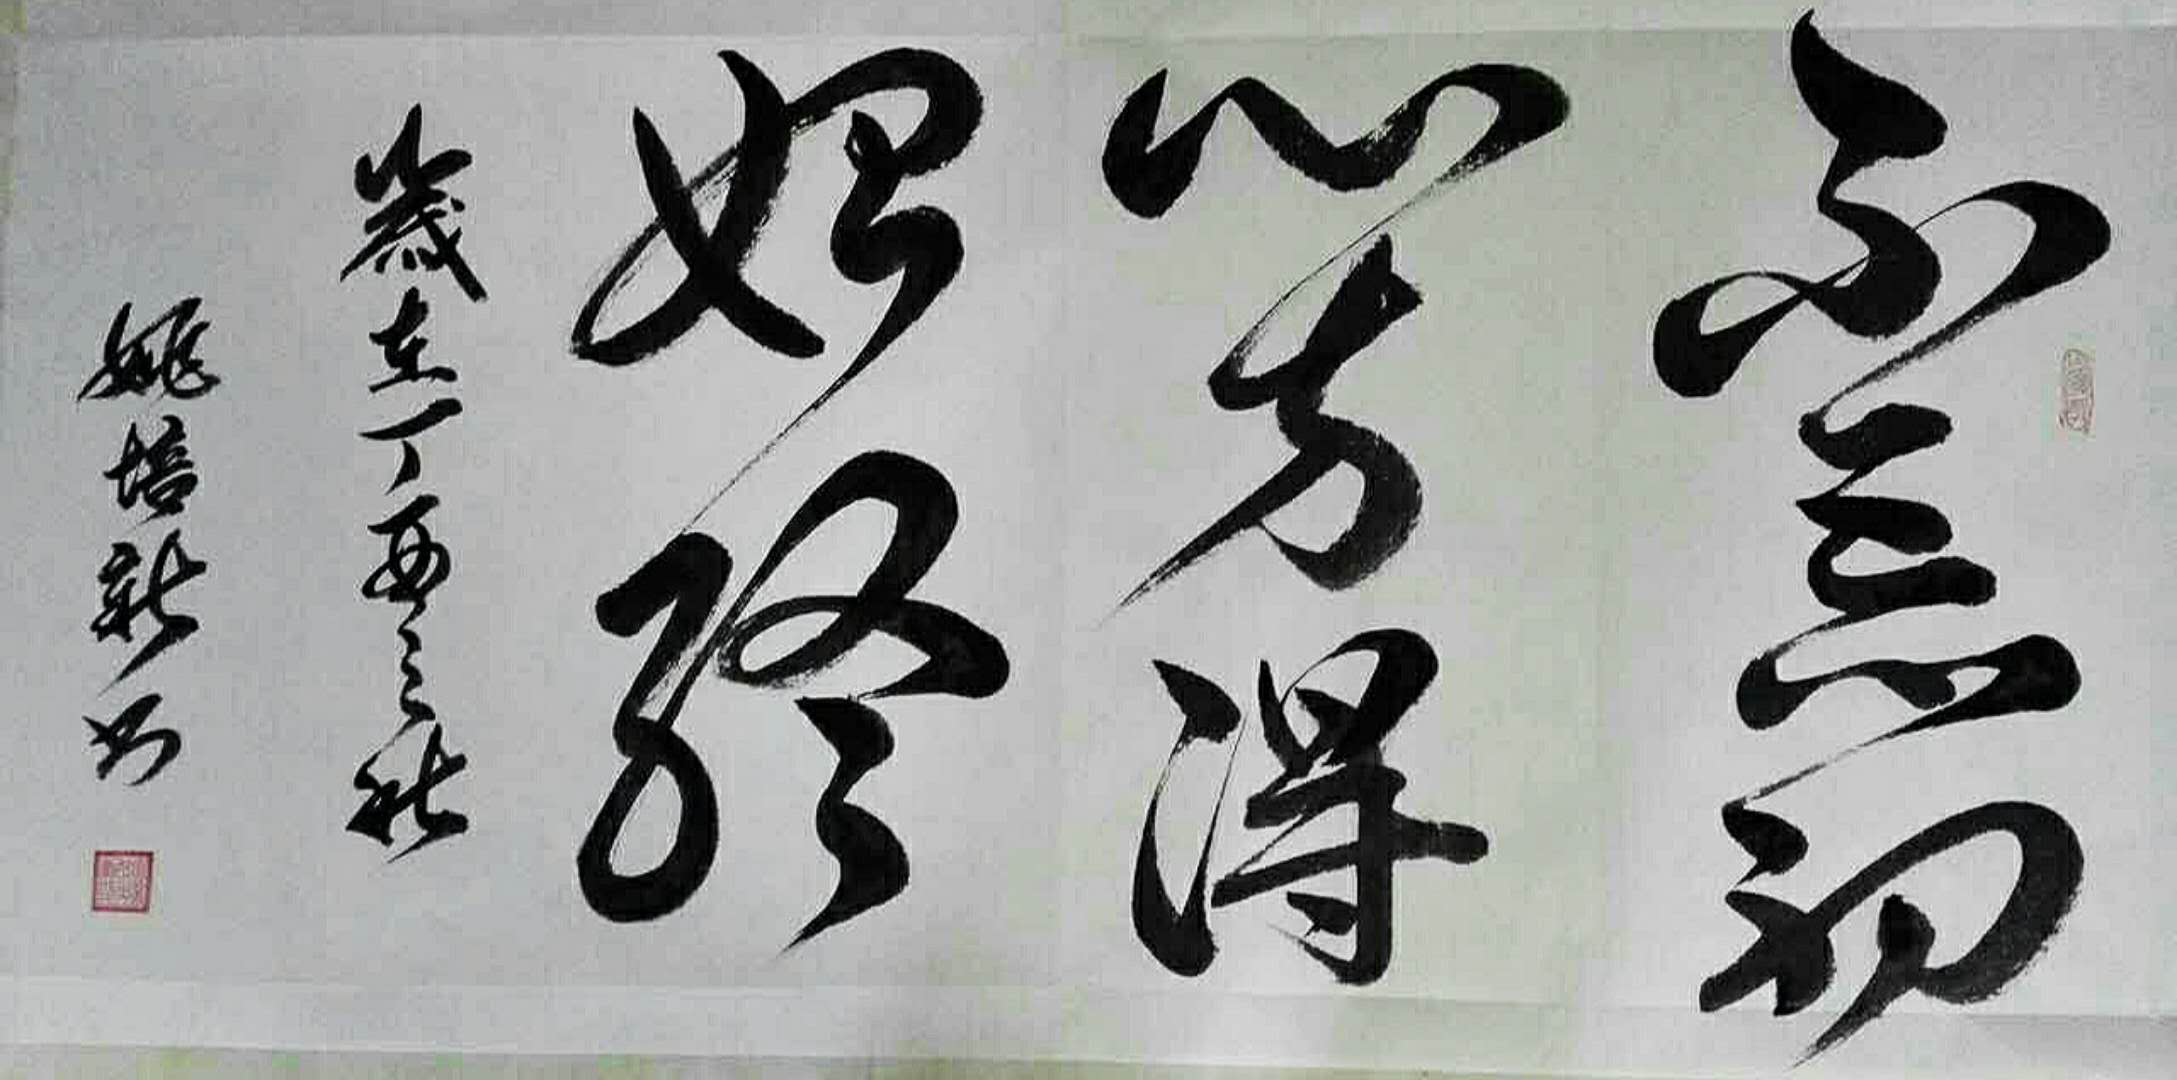 不忘初
心方得
始终
歲在丁酉之秋
姚培新书